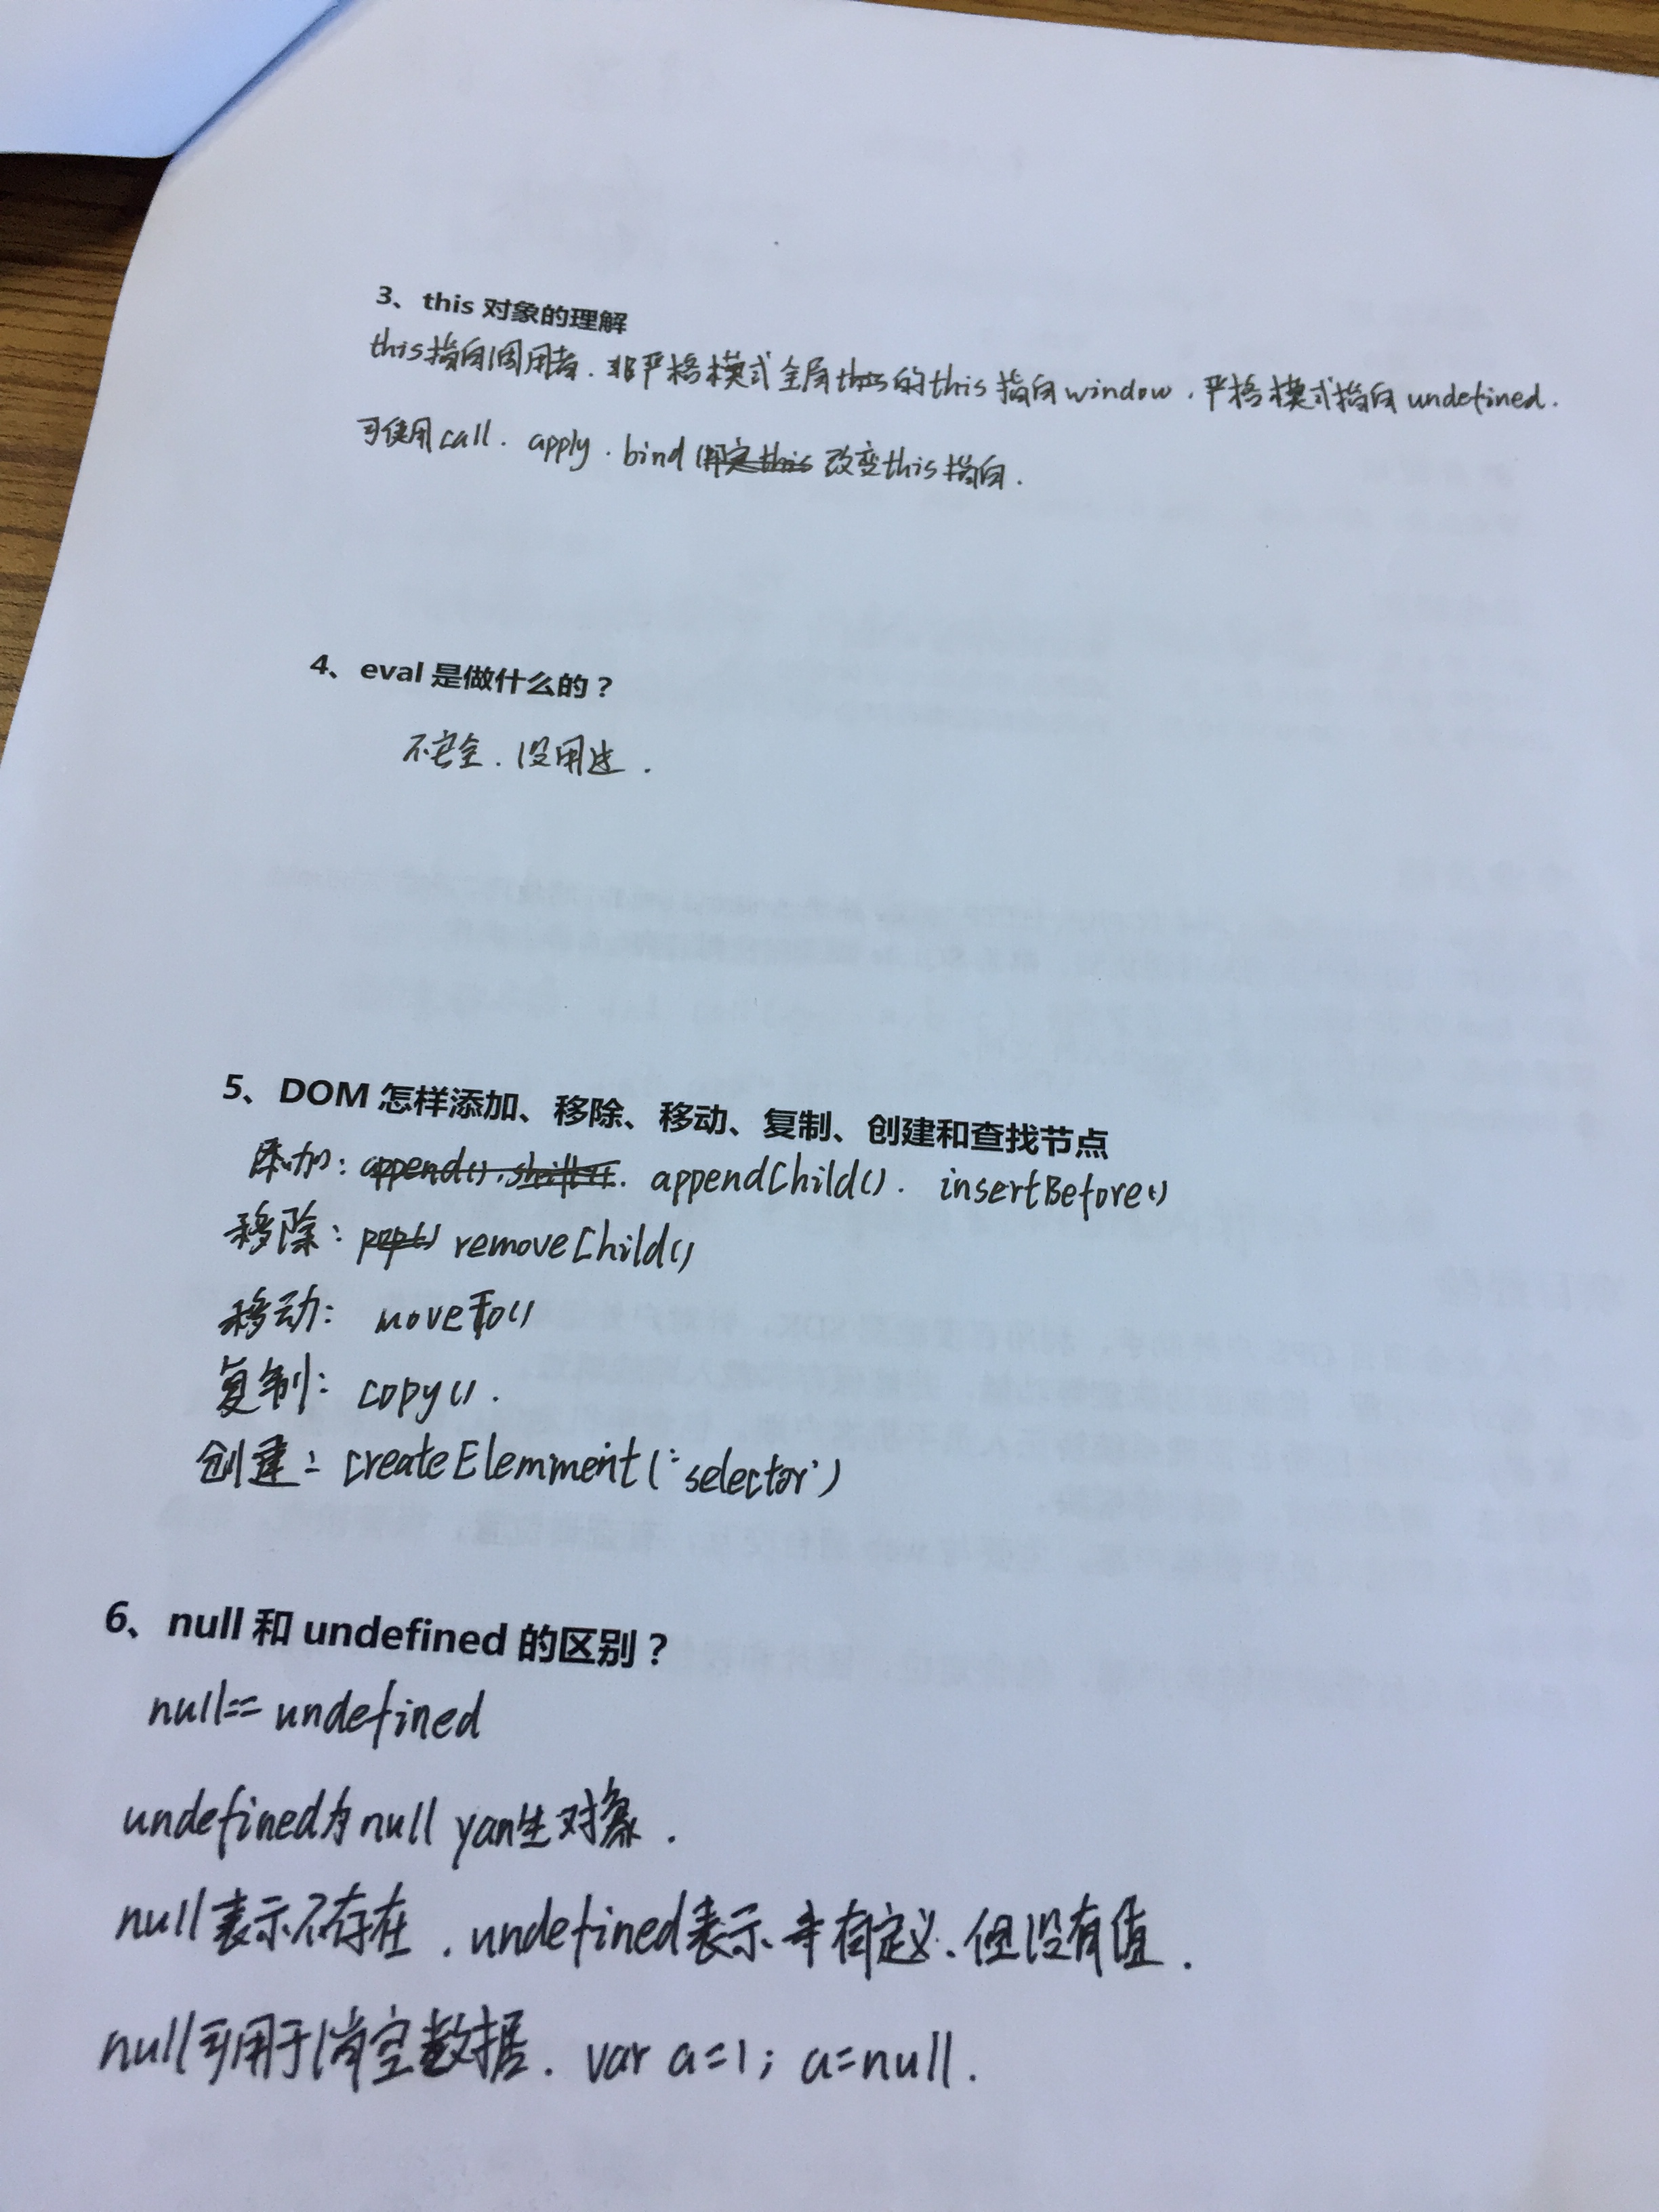 3、this 对象的理解
this指向调用者. 非严格模式全局的this指向window, 严格模式指向undefined.
可使用call. apply. bind 改变this指向.
4、eval 是做什么的？
不安全. 没用过.
5、DOM 怎样添加、移除、移动、复制、创建和查找节点
添加: append(). shift(). appendChild(). insertBefore()
移除: pop() removeChild()
移动: moveTo()
复制: copy().
创建: createElemment('selector')
6、null 和 undefined 的区别？
null== undefined
undefined为null yan生对象.
null表示不存在. undefined表示 有定义、但没有值.
null可用于清空数据. var a=1; a=null.